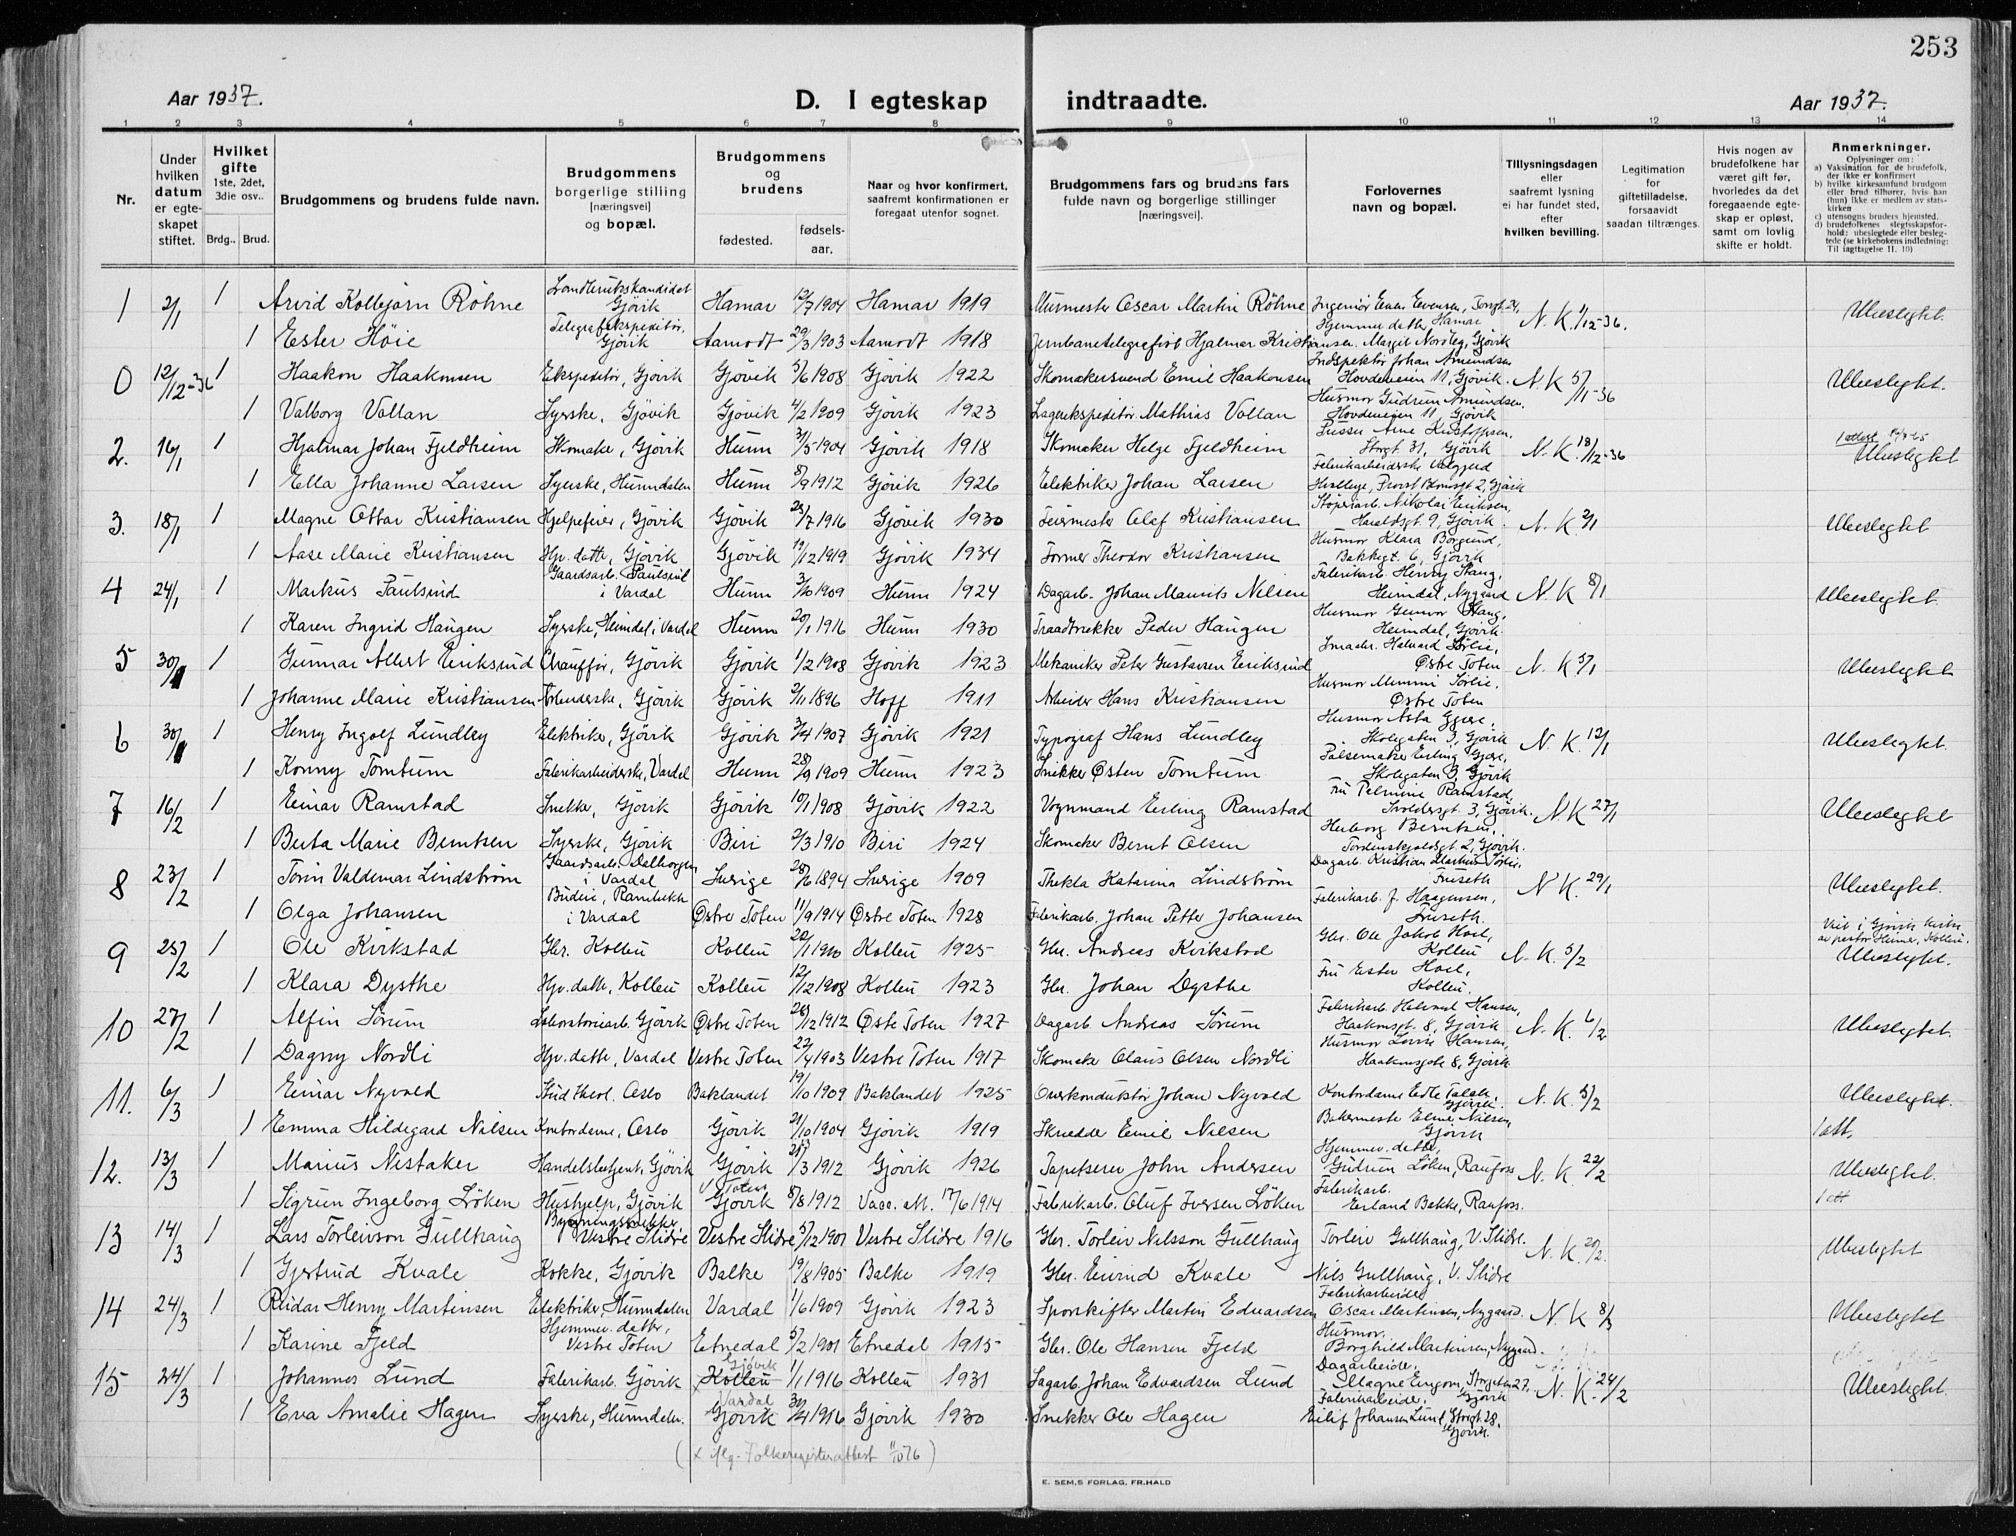 253
Aar 1937.
D. I egteskap indtraadte.
Aar 1937.
1 2 3 4 5 6 7 8 9 10 11 12 13 14
Nr.
Under hvilken datum er egteskapet stiftet.
Hvilket gifte
1ste, 2det, 3die osv..
Brdg.. Brud.
Brudgommens og brudens fulde navn.
Brudgommens borgerlige stilling [næringsvei] og bopæl.
Brudgommens og brudens
fødested.
fødselsaar.
Naar og hvor konfirmert, saafremt konfirmationen er foregaat utenfor sognet.
Brudgommens fars og brudens fars fulde navn og borgerlige stillinger [næringsvei].
Forlovernes navn og bopæl.
Tillysningsdagen eller saafremt lysning ei har fundet sted, efter hvilken bevilling.
Legitimation for giftetilladelse, forsaavidt saadan tiltrænges.
Hvis nogen av brudefolkene har været gift før, hvorledes da det foregaaende egteskap er opløst, samt om lovlig skifte er holdt.
Anmerkninger.
Oplysninger om:
a) Vaksination for de brudefolk, der ikke er konfirmert
b) hvilke kirkesamfund brudgom eller brud tilhører, hvis han (hun) ikke er medlem av statskirken
c) utensogns bruders hjemsted.
d) brudefolkenes slegtsskapsforhold: ubeslegtede eller beslegtede (se kirkebokens indledning: Til iagttagelse II. 10)
1 2/1 1 Arvid Kolbjørn Röhne Landbrukskandidat Gjövik Hamar 12/7 1904 Hamar 1919 Murmester Oscar Martin Röhne Ingeniør Einar Evensen, Torgt. 24, Hjemmev. datter Hamar N. K. 1/12-36. Ubeslegtet.
1 Ester Höie Telegrafekspeditør, Gjövik Aamodt 29/3 1903 Aamodt 1918 Jernbanetelegrafist Hjalmar Kristiansen. Margit Nordleg, Gjövik
0 12/12-36 1 Haakon Haakonsen Ekspeditør, Gjövik Gjövik 5/6 1908 Gjövik 1922 Skomakersvend Emil Haakonsen Indspektör Johan Amundsen Hovdeveien 11, Gjövik. N. K 5/11-36 Ubeslegtet.
1 Valborg Vollan Syerske, Gjövik Gjövik 4/2 1909 Gjövik 1923 Lagerekspeditör Mathias Vollan Husmor Gudrun Amundsen. Hovdeveien 11, Gjövik
2. 16/1 1 Hjalmar Johan Fjeldheim Skomaker, Gjövik Hunn 31/5 1904 Gjövik 1918 Skomaker Helge Fjeldheim Pusser Arne Kristoffersen, Storgt. 31, Gjövik N. K. 18/12-36 Ubeslegtet
1 Ella Johanne Larsen Syerske, Hunndalen Hunn 8/9 1912 Gjövik 1926 Elektriker Johan Larsen Fabrikarbeiderske
3. 18/1 1 Magne Ottar Kristiansen Hjelpefeier, Gjövik Gjövik 23/7 1916 Gjövik 1930 Feiermester Olaf Kristiansen Støperiarb. Nikolai Eriksen, Haraldsgt 9, Gjövik. N. K 2/1 Ubeslegtet
1 Aase Marie Kristiansen Hjv. datter, Gjövik Gjövik 19/12 1919 Gjövik 1934 Former Theodor Kristiansen Husmor Klara Borgund, Bakkegt. 6, Gjövik
4 24/1 1 Markus Paulsrud Gaardsarb. Paulsrud i Vardal Hunn 3/6 1909 Hunn 1924 Dagarb. Johan Maurits Nilsen Fabrikarb. Henry Stang, Heimdal, Nygaard N. K 8/1 Ubeslegtet.
1 Karen Ingrid Haugen Syerske, Heimdal i Vardal Hunn 20/1 1916 Hunn 1930 Traadtrekker Peder Haugen Husmor Gunvor Stang, Heimdal, Gjövik.
5 30/1 1 Gunnar Albert Eriksrud Chauffør, Gjövik Gjövik 1/2 1908 Gjövik 1923 Mekaniker Peter Gustavsen Eriksrud Smaabr. Halvard Sørlie, Østre Toten N. K 5/1 Ubeslegtet
1 Johanne Marie Kristiansen Arbeiderske, Gjövik Gjövik 2/11 1896 Hoff 1911 Arbeider Hans Kristiansen Husmor Mimmi Sørlie, Østre Toten
6 30/1 1 Henry Ingolf Lundby Elektriker, Gjövik Gjövik 3/4 1907 Gjövik 1921 Typograf Hans Lundby Husmor Asta Gjære, Skolegaten 3, Gjövik N. K. 12/1 Ubeslegtet.
1 Konny Tomtum Fabrikarbeiderske, Vardal Hunn 28/9 1909 Hunn 1923 Snekker Østen Tomtum Pølsemaker Erling Gjære, Skolegaten 3, Gjövik
7 16/2 1 Einar Ramstad Snekker, Gjövik Gjövik 10/1 1908 Gjövik 1922 Vognmand Erling Ramstad Fru Petrine Ramstad, Svoldersgt. 3, Gjövik. N. K 27/1 Ubeslegtet
1 Berta Marie Berntsen Syerske, Gjövik Biri 2/3 1910 Biri 1924 Skomaker Bernt Olsen Herborg Berntsen, Tordenskjoldsgt 2, Gjövik.
8 23/2 1 Torin Valdemar Lindström Gaardsarb. Dalborgen i Vardal Sverige 28/6 1894 Sverige 1909 Thekla Katarina Lindström Dagarb. Kristian Martin Sørlie, Fruseth N. K. 29/1 Ubeslegtet.
1 Olga Johansen Budeie, i Vardal Østre Toten 11/9 1914 Østre Toten 1928 Fabrikarb. Johan Petter Johansen Fabrikarb. J. Haagensen, Fruseth.
9 25/2 1 Ole Kirkstad Gbr. Kolbu Kolbu 20/1 1910 Kolbu 1925 Gbr. Andreas Kirkstad Gbr. Ole Jakob Hoel, Kolbu N. K. 5/2 Viet i Gjövik kirke av pastor Heimer, Kolbu. Ubeslegtet.
1 Klara Dysthe Hjv. datter, Kolbu Kolbu 12/12 1908 Kolbu 1923 Gbr. Johan Dysthe Fru Ester Hoel, Kolbu.
10 27/2 1 Alfin Sørum Laboratoriearb. Gjövik Østre Toten 26/12 1912 Østre Toten 1927 Dagarb. Andreas Sørum Fabrikarb. Hansen, Haakonsgt. 8, Gjövik N. K 6/2 Ubeslegtet.
1 Dagny Nordli Hjv. datter, Vardal Vestre Toten 22/4 1903 Vestre Toten 1917 Skomaker Olaus Olsen Nordli Husmor Lovise Hansen, Haakonsgate 8, Gjövik
11. 6/3 1 Einar Nyvold Stud theol. Oslo Baklandet 19/10 1909 Baklandet 1925 Overkonduktør Johan Nyvold Kontordame Edle Gjövik. N. K. 5/2 Ubeslegtet.
1 Emma Hildegard Nilsen Kontordame, Oslo Gjövik 21/10 1904 Gjövik 1919 Skredder Emil Nilsen Bakermester Nilsen, Gjövik 1 att.
12. 13/3 1 Marius Nestaker Handelsbetjent, Gjövik Gjövik 25/3 1912 Gjövik 1926 Tapetserer John Andersen Hjemmev. datter, Gudrun Løken, Raufoss N. K. 22/2 Ubeslegtet.
1 Sigrun Ingeborg Løken Hushjelp, Gjövik V. Toten Gjövik 8/8 1912 Vacc. att. 17/6 1914 Fabrikarb. Oluf Iversen Løken Fabrikarb. Erland Bakke, Raufoss. 1 att
13 14/3 1 Lars Torleivson Gullhaug Bygningssnekker, Vestre Slidre Vestre Slidre 5/12 1901 Vestre Slidre 1916 Gbr. Torleiv Nilsson Gullhaug Torleiv Gullhaug, V. Slidre. N. K. 20/2. Ubeslegtet
1 Gjertrud Kvale Kokke, Gjövik Balke 19/8 1905 Balke 1919 Gbr. Eivind Kvale Nils Gullhaug, V. Slidre
14 24/3 1 Reidar Henry Martinsen Elektriker, Hunndalen Vardal 1/6 1909 Gjövik 1923 Sporskifter Martin Edvardsen Fabrikarbeider Oscar Martinsen, Nygaard. N. K 8/3 Ubeslegtet
1 Karine Fjeld Hjemmev. datter, Vestre Toten Etnedal 5/2 1901 Etnedal 1915 Gbr. Ole Hansen Fjeld Husmor. Borghild Martinsen, Nygaard.
15 24/3 1 Johannes Lund Fabrikarb. Gjövik Gjövik Kolbu 1/1 1916 Kolbu 1931 Sagarb. Johan Edvardsen Lund Dagarbeider. Magne Engom, Storgaten 27, Gjövik N. K. 24/2 Ubeslegtet.
1 Eva Amalie Hagen Syerske, Hunndalen. Vardal Gjövik 30/4 1916 Gjövik 1930 Snekker Ole Hagen Fabrikarbeider, Eilif Johansen Lund, Storgt. 28. Gjövik.
(x iflg. Folkeregisterattest 11/10 76)
E. SEM.S FORLAG, FR.HALD